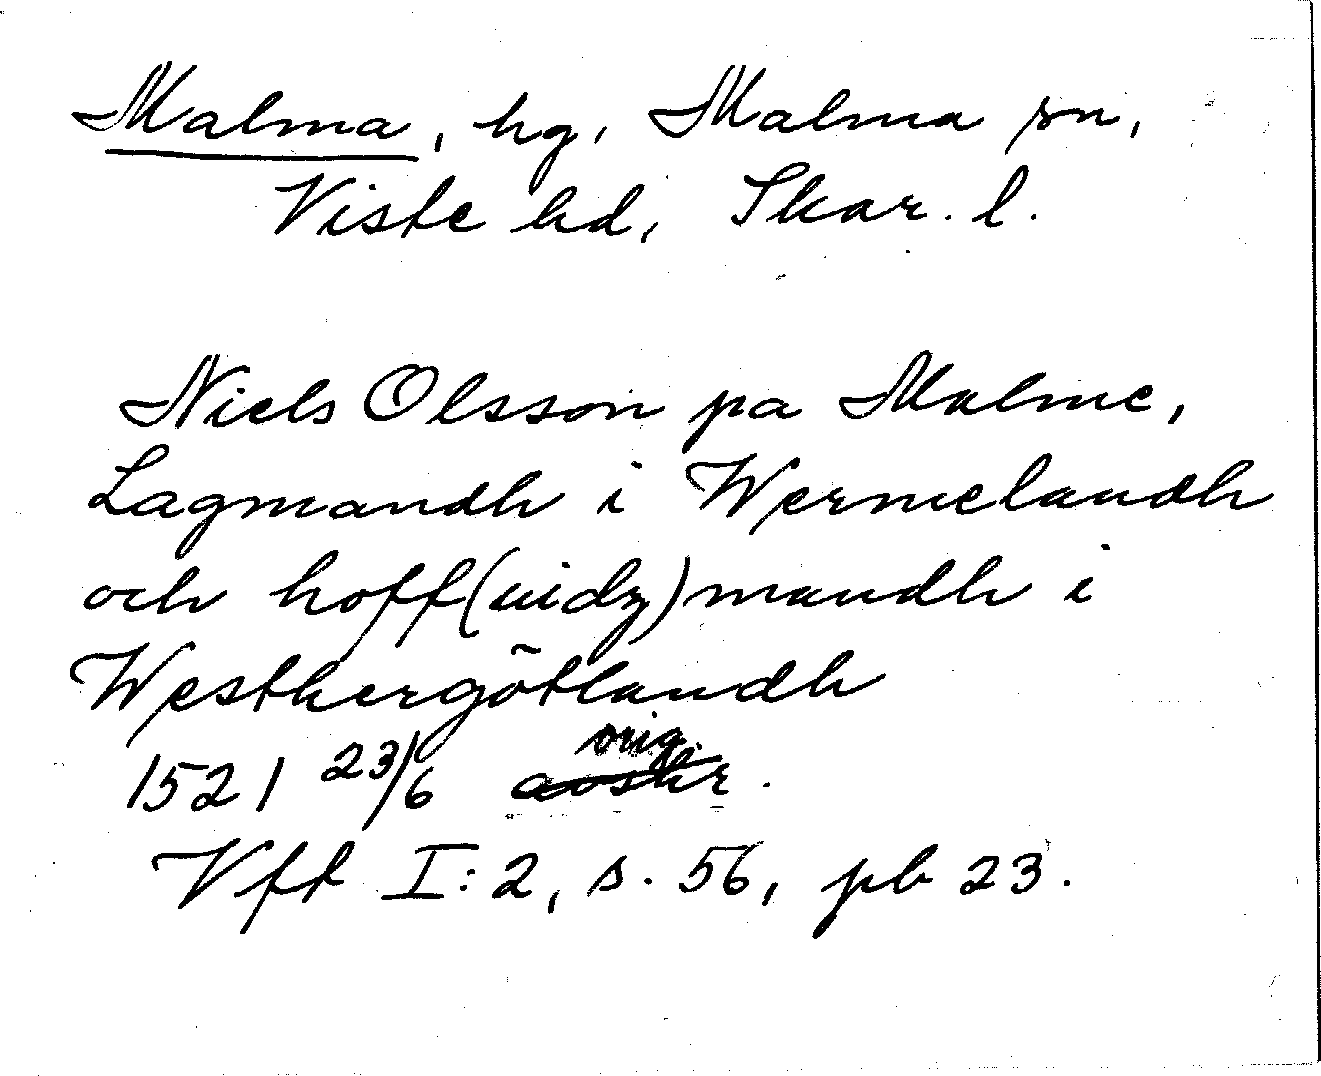 Malma, hg, Malma sn,
Viste hd, Skar. l.
Niels Olsson pa Malme,
Lagmandh i Wermelandh
och hoff(uidz)mandh i
Westhergötlandh
1521 23/6 orig.
avskr.
Vft I:2, s. 56, pb 23.